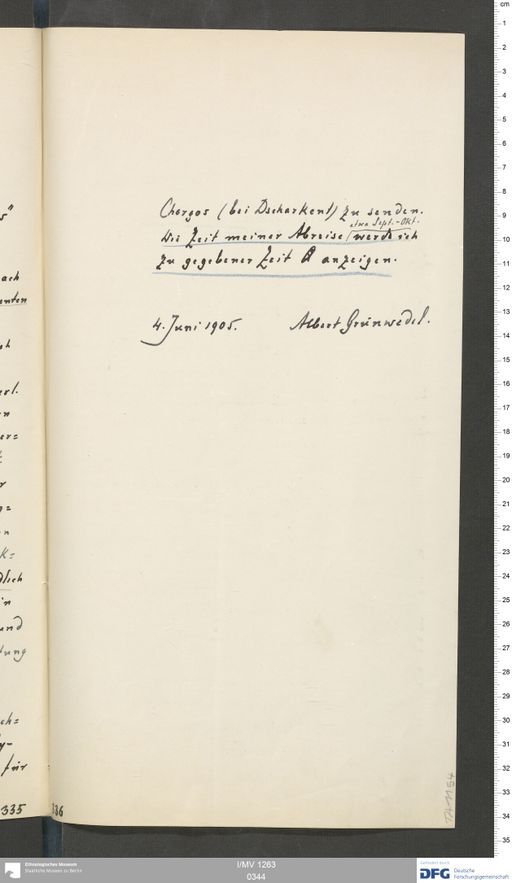 Chorgos (bei Dscharkent) zu senden.
etwa Sept.-Okt.
Die Zeit meiner Abreise werde ich
zu gegebener Zeit anzeigen.
4. Juni 1905. Albert Grünwedel.
ach
enten
erl.
er=
dlich
in
und
tung
für
335
336
TA 1154
cm
1
2
3
4
5
6
7
8
9
10
11
12
13
14
15
16
17
18
19
20
21
22
23
24
25
26
27
28
29
30
31
32
33
34
35
Ethnologisches Museum
Staatliche Museen zu Berlin
I/MV 1263
0344
Gefördert durch
DFG Deutsche
Forschungsgemeinschaft